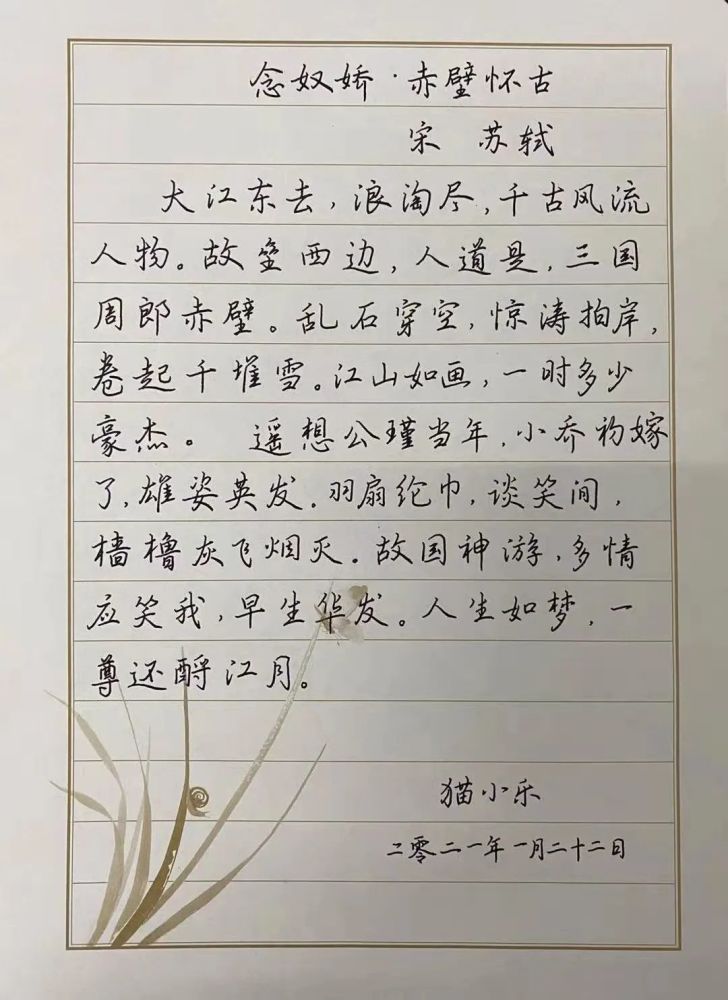 念奴娇·赤壁怀古
宋 苏轼
大江东去,浪淘尽,千古风流
人物。故垒西边,人道是,三国
周郎赤壁。乱石穿空,惊涛拍岸,
卷起千堆雪。江山如画,一时多少
豪杰。 遥想公瑾当年,小乔初嫁
了,雄姿英发。羽扇纶巾,谈笑间,
樯橹灰飞烟灭。故国神游,多情
应笑我,早生华发。人生如梦,一
尊还酹江月。
猫小乐
二零二一年一月二十二日